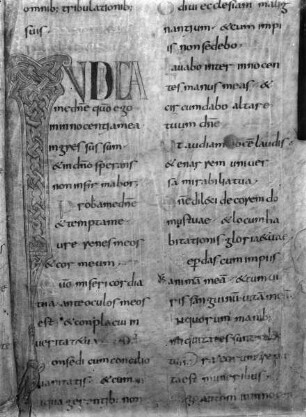 omnib; tribulationib;
suis.
IUDICA
me dne quo ego
in innocentia mea
ingressus sum
& in dno sperans
non infirmabor;
Proba me dne
& tempta me
ure renes meos
& cor meum
misericordia
tua ante oculos meos
est & conplacui in
veritate tua
consedi cum concilio
vanitatis & cum
non
odivi ecclesiam malig
nantium & cum impi
is non sedebo
Lavabo inter innocen
tes manus meas &
circumdabo altare
tuum dne
Ut audiam laudis
& enarrem univer
sa mirabilia tua
dilexi decorem do
mus tuae & locum ha
bitationis gloriae tuae
perdas cum impiis
animam meam & cum vi
ris sanguinum
In quorum manib;
iniquitates sunt
dextera
muneribus